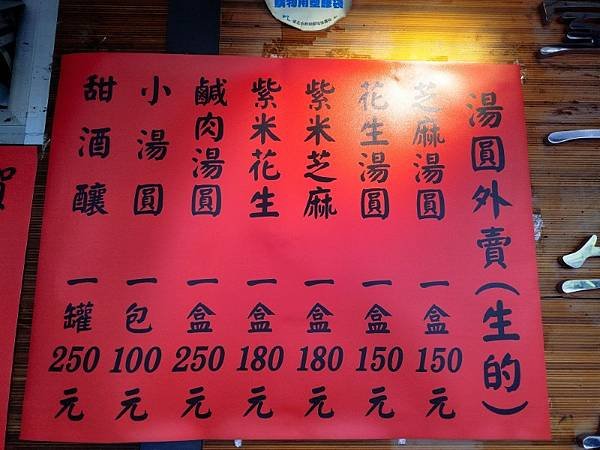 購物用塑膠袋
湯圓外賣(生的)
芝麻湯圓 一盒150元
花生湯圓 一盒150元
紫米芝麻 一盒180元
紫米花生 一盒180元
鹹肉湯圓 一盒250元
小湯圓 一包100元
甜酒釀 一罐250元